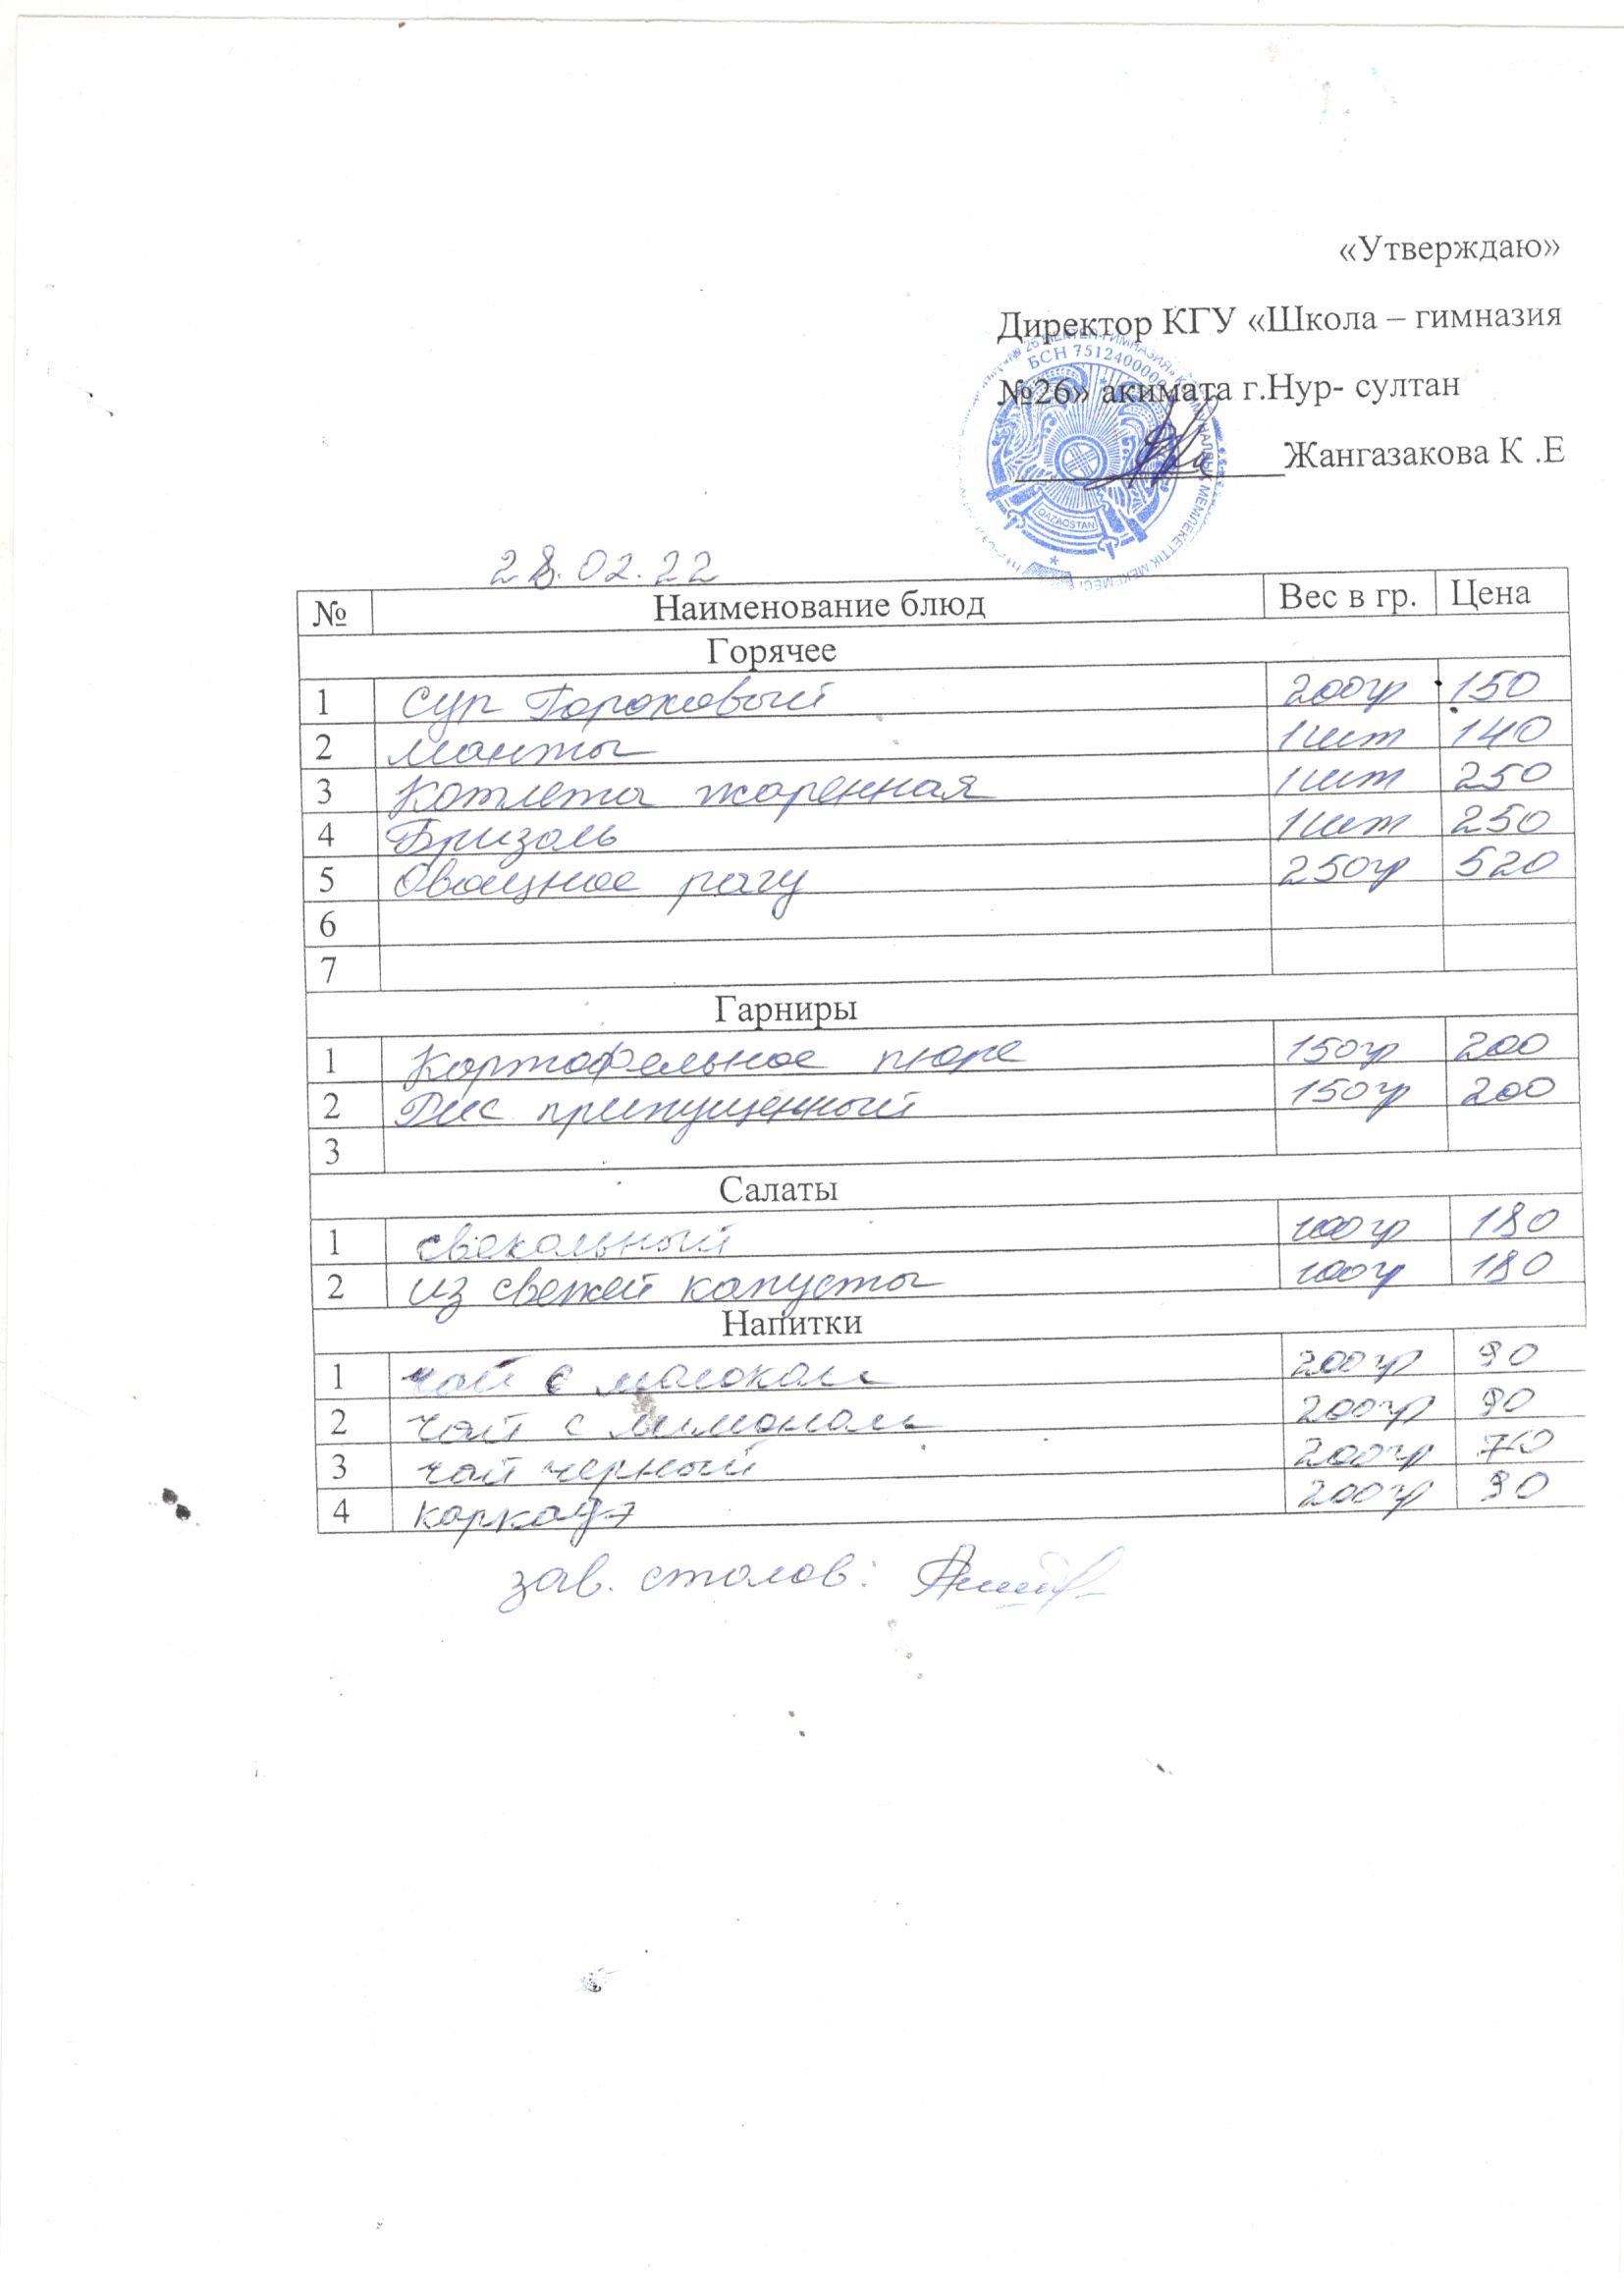 «Утверждаю»
Директор КГУ «Школа – гимназия
№26» акимата г.Нур- султан
Жангазакова К .Е
БСН 7512400000
QAZAQSTAN
28.02.22
№ Наименование блюд Вес в гр. Цена
Горячее
1 Суп Гороховый 200гр 150
2 Манты 1шт 140
3 Котлета жаренная 1шт 250
4 Бризоль 1шт 250
5 Овощное рагу 250гр 520
6
7
Гарниры
1 Картофельное пюре 150гр 200
2 Рис припущенный 150гр 200
3
Салаты
1 свекольный 100гр 180
2 из свежей капусты 100гр 180
Напитки
1 чай с молоком 200гр 90
2 чай с лимоном 200гр 90
3 чай черный 200гр 70
4 каркадэ 200гр 90
зав. столов: